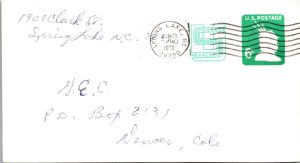 1909 Clark St.
Spring Lake N.C.
SPRING LAKE, NC
1972
U.S. POSTAGE
6¢
G.E.C
P.O. Box 2131
Denver, Colo